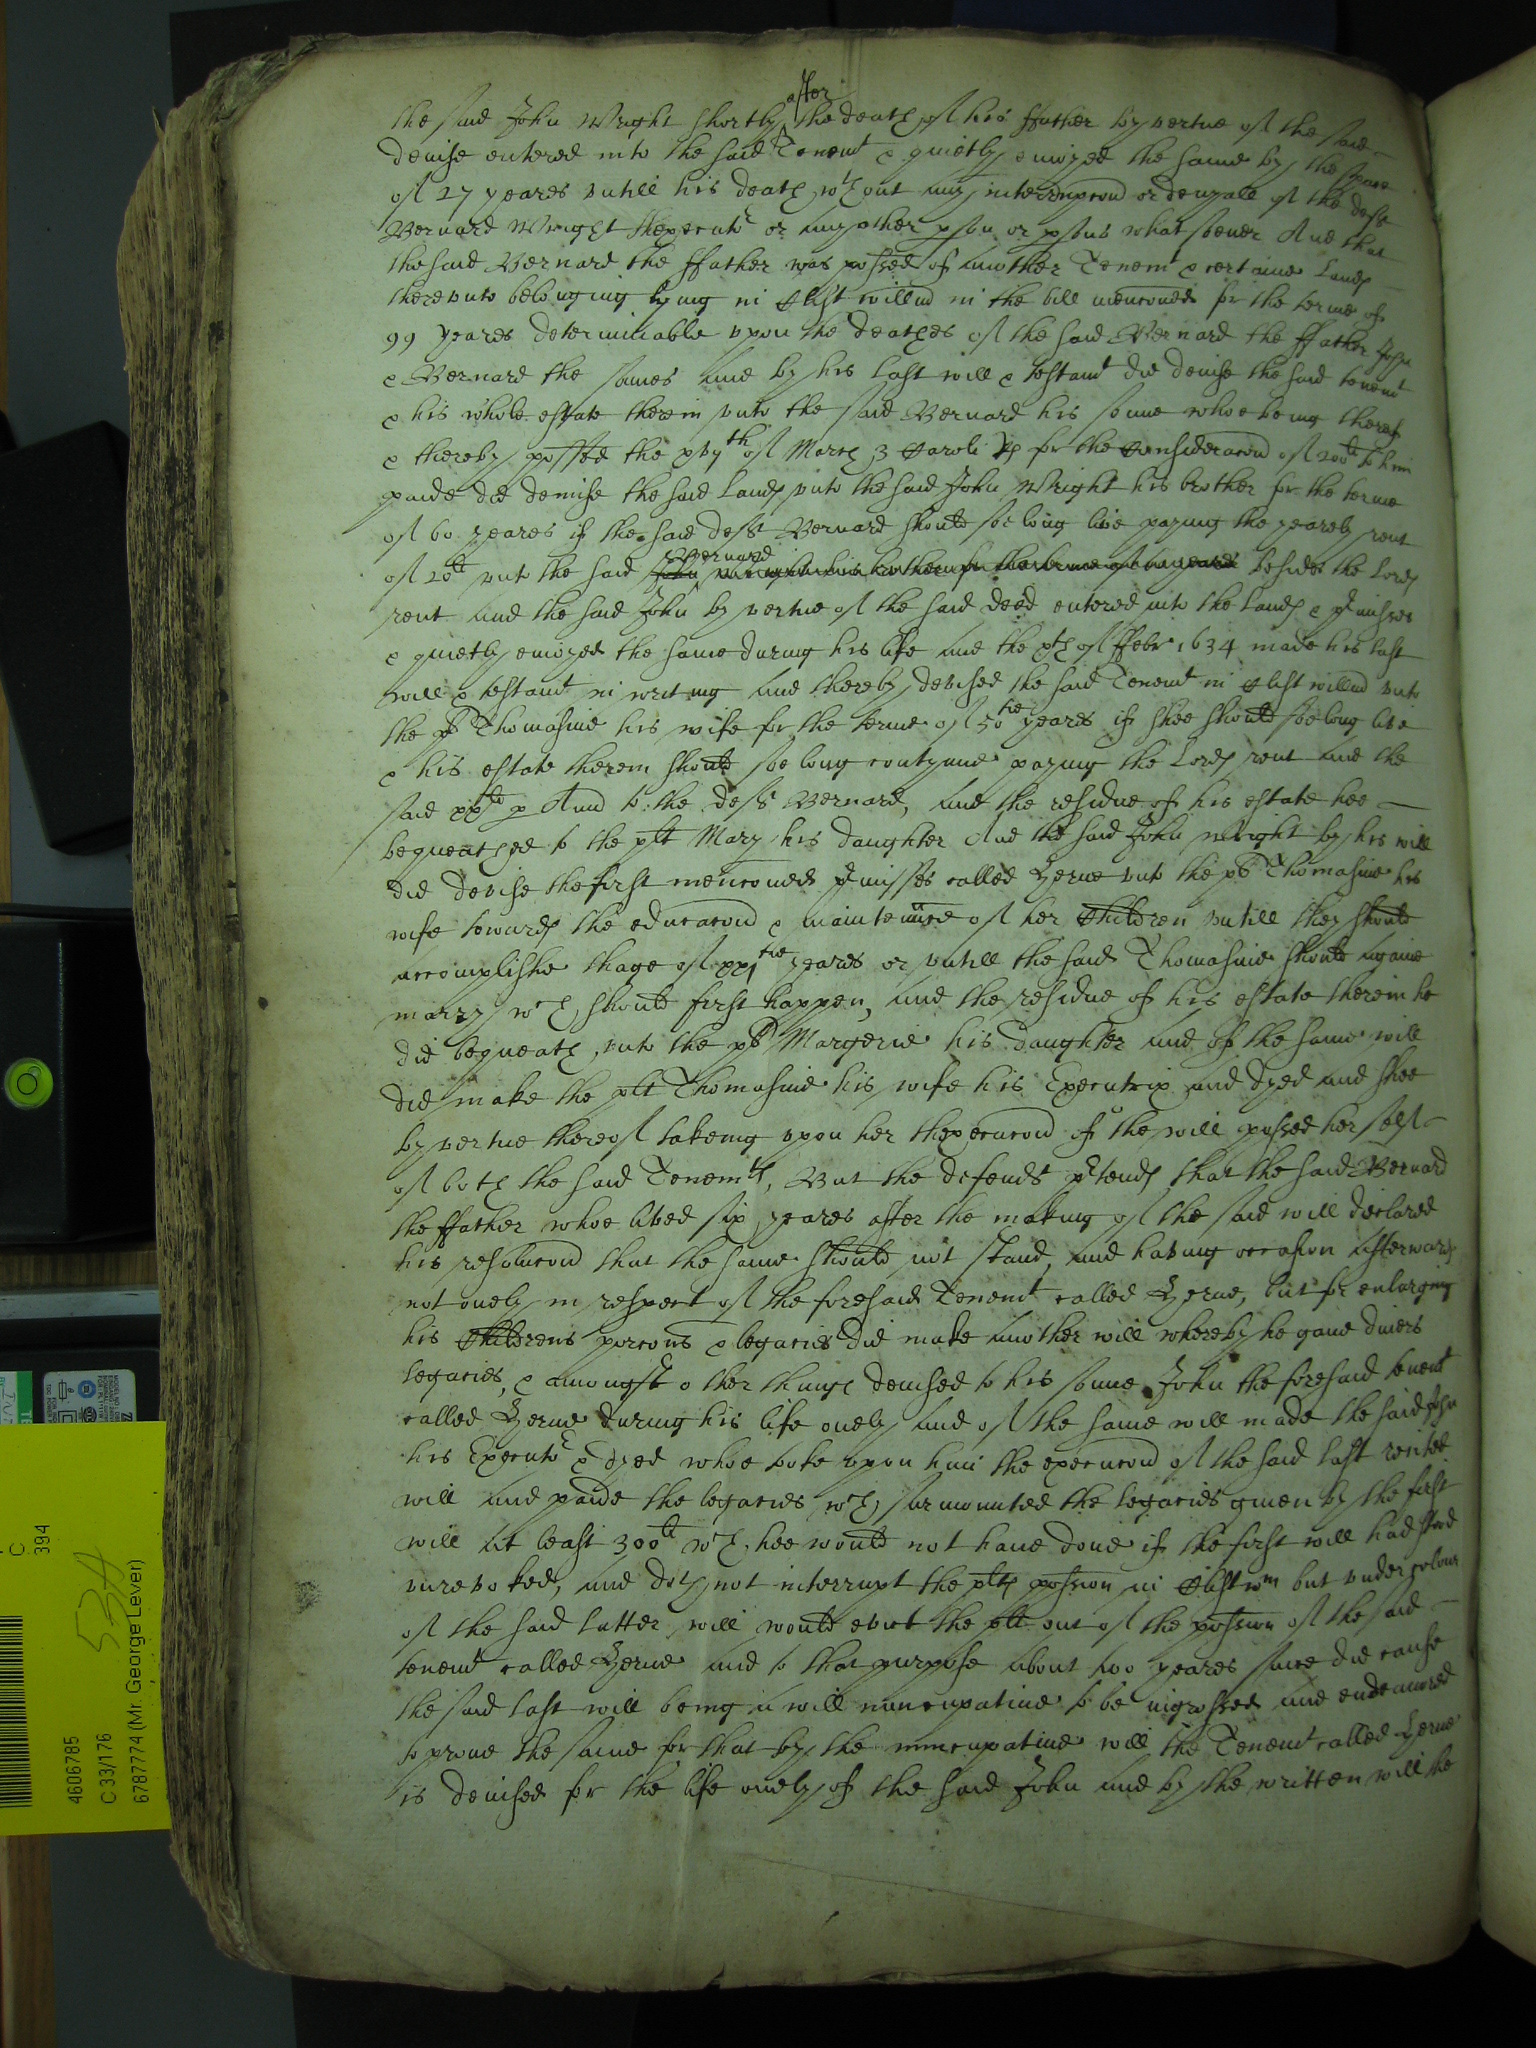 the said John Wright shortly after the death of his ffather by vertue of the said
devise entered into the said Tenemt & quietly enioyed the same by the space
of 27 yeares vntill his death wch out any interrupcon or denyall of the deft
Bernard Wright thexecutr or any other pson or psons whatsoever And that
the said Bernard the ffather was possed of another Tenemt & certaine Lands
therevnto belonging lying in in the bill menconed for the terme of
99 yeares determinable vpon the deathes of the said Bernard the ffather John
& Bernard the sonnes and by his last will & testamt did devise the said tenemt
& his whole estate therein vnto the said Bernard his sonne whoe being thereof
& thereby possed the xvjth of March 3 Caroli Rs for the Consideracon of 200li to him
paide did demise the said Lands vnto the said John Wright his brother for the terme
of 60 yeares if the said deft Bernard should soe long live paying the yearely rent
of 20li vnto the said Bernard besides the Lords
rent and the said John by vertue of the said deed entered into the Lands & pmisses
& quietly enioyed the same during his life and the xth of ffebr 1634 made his last
will & testamt in writing and thereby devised the said Tenemt in vnto
the plt Thomasine his wife for the terme of 50tie yeares if shee should soe long live
& his estate therein should soe long contynue paying the Lords rent and the
said xxli p Ann to the deft Bernard, and the residue of his estate hee
bequeathed to the plt Mary his daughter And the said John Wright by his will
did devise the first menconed pmisses called Zerne vnto the plt Thomasine his
wife towards the educacon & maintennce of her Children vntill they should
accomplishe thage of xxjtie yeares or vntill the said Thomasine should againe
marry wch should first happen, and the residue of his estate therein he
did bequeath vnto the plt Margerie his daughter and of the same will
did make the plt Thomasine his wife his Executrix and dyed and shee
by vertue thereof takeing vpon her thexecucon of the will possed her self
of both the said Tenemts, But the defendt ptends that the said Bernard
the ffather whoe lived six yeares after the making of the said will declared
his resolucon that the same should not stand, and having occasion afterwards
not onely in respect of the foresaid Tenemt called Zerne, but for enlarging
his Childrens porcons & legacies did make another will whereby he gaue diuers
legacies, & amongst other things devised to his sonne John the foresaid tenemt
called Zerne during his life onely and of the same will made the said John
his Executr & dyed whoe tooke vpon him the execucon of the said last recited
will and paide the legacies wch surmounted the legacies giuen by the first
will at least 300li wch hee would not haue done if the first will had stood
vnrevoked, and doth not interrupt the plts possion in but vnder colour
of the said latter will would evict the plt out of the possion of the said
tenemt called Zerne and to that purpose about two yeares since did cause
the said last will being a will nuncupatiue to be ingrossed and endeavored
to proue the same for that by the nuncupatiue will the Tenemt called Zerne
is devised for the life onely of the said John and by the written will the
4606785
C 33/176
6787774 (Mr. George Lever)
C
394
53A